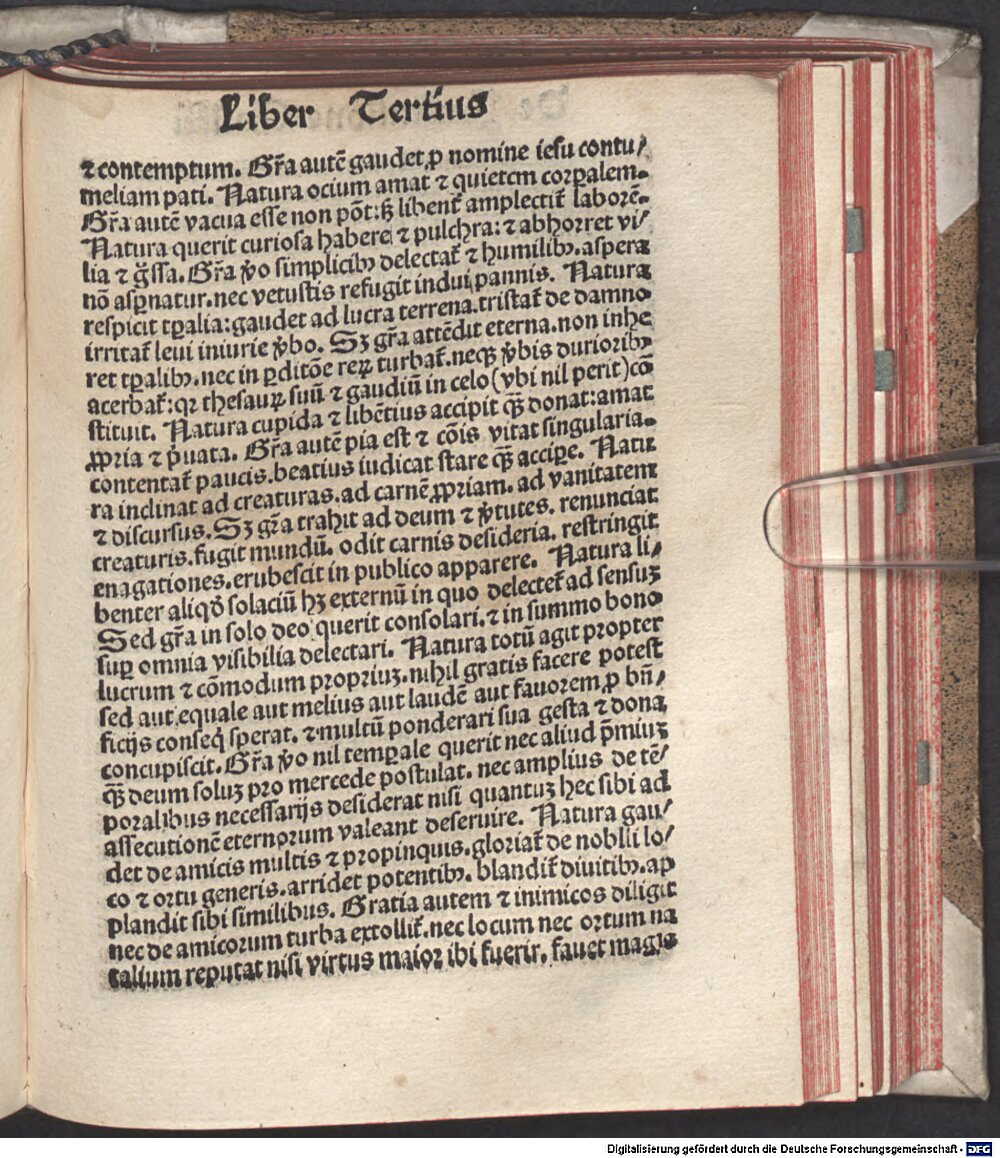 Liber Tertius
⁊ contemptum. Gr̄a autē gaudet ꝓ nomine iesu contu/
meliam pati. Natura ocium amat ⁊ quietem corꝑalem.
Gr̄a autē vacua esse non pōt: sꝫ libent̄ amplectit̄ laborē.
Natura querit curiosa habere ⁊ pulchra: ⁊ abhorret vi/
lia ⁊ g̊ssa. Gr̄a v̊o simplicibꝰ delectat̄ ⁊ humilibꝰ. aspera
nō asꝑnatur. nec vetustis refugit indui pannis. Natura
respicit tꝑalia: gaudet ad lucra terrena. tristat̄ de damno
irritat̄ leui iniurie v̊bo. Sꝫ gr̄a attēdit eterna. non inhe
ret tꝑalibꝰ. nec in ꝑditōe reꝝ turbat̄. neqꝫ v̊bis durioribꝰ
acerbat̄: qꝛ thesauꝝ suū ⁊ gaudiū in celo (vbi nil perit) cō
stituit. Natura cupida ⁊ libētius accipit qꝫ̄ donat: amat
ꝓpria ⁊ p̄uata. Gr̄a autē pia est ⁊ cōis vitat singularia.
contentat̄ paucis. beatius iudicat stare qꝫ̄ acciꝑe. Natu
ra inclinat ad creaturas. ad carnē ꝓpriam. ad vanitatem
⁊ discursus. Sꝫ gr̄a trahit ad deum ⁊ v̊tutes. renunciat
creaturis. fugit mundū. odit carnis desideria. restringit
euagationes. erubescit in publico apparere. Natura li/
benter aliqd̓ solaciū hꝫ externū in quo delectet̄ ad sensuꝫ
Sed gr̄a in solo deo querit consolari. ⁊ in summo bono
suꝑ omnia visibilia delectari. Natura totū agit propter
lucrum ⁊ cōmodum propriuꝫ. nihil gratis facere potest
sed aut equale aut melius aut laudē aut fauorem ꝓ bn̄/
ficijs conseq̇ sperat. ⁊ multū ponderari sua gesta ⁊ dona
concupiscit. Gr̄a v̊o nil temꝑale querit nec aliud p̄miuꝫ
qꝫ̄ deum soluꝫ pro mercede postulat. nec amplius de tē/
poralibus necessarijs desiderat nisi quantuꝫ hec sibi ad
assecutionē eternorum valeant deseruire. Natura gau/
det de amicis multis ⁊ propinquis. gloriat̄ de nobili lo/
co ⁊ ortu generis. arridet potentibꝰ. blandit̄ diuitibꝰ. ap
plandit sibi similibus. Gratia autem ⁊ inimicos diligit
nec de amicorum turba extollit̄. nec locum nec ortum na
talium reputat nisi virtus maior ibi fuerit. fauet magis
Digitalisierung gefördert durch die Deutsche Forschungsgemeinschaft - DFG